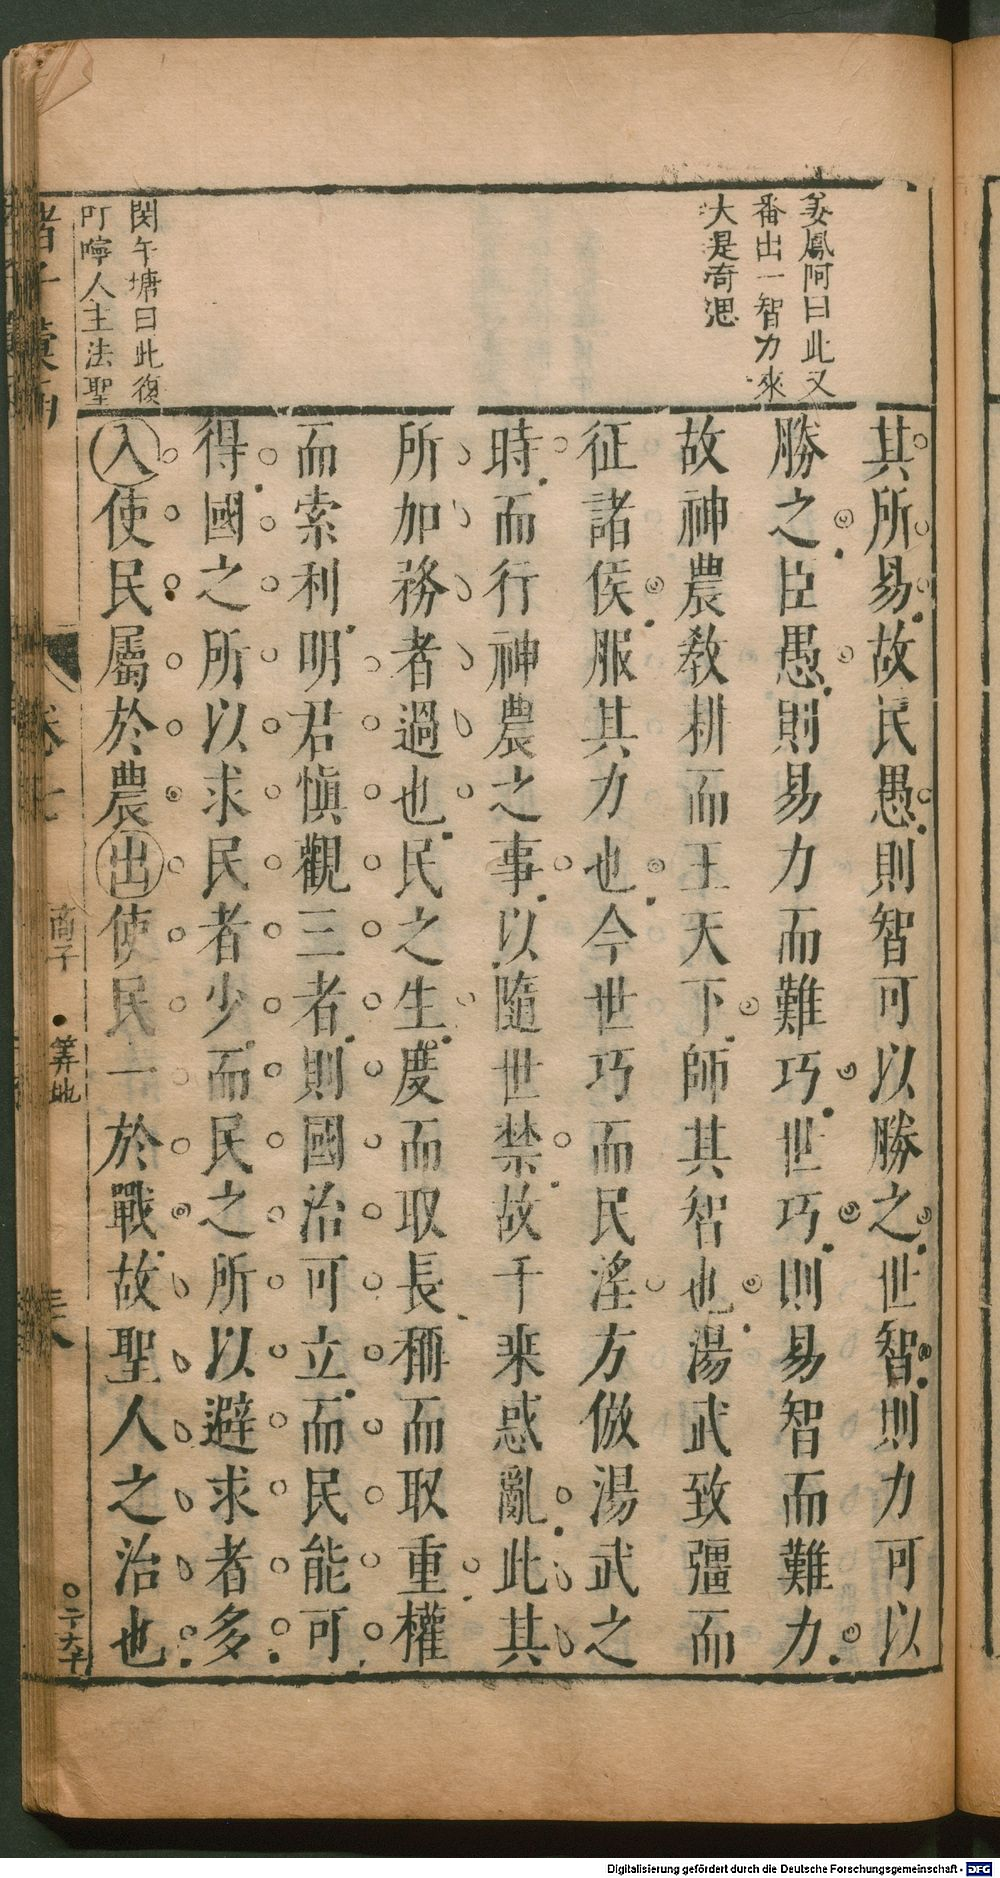 姜鳳阿曰此又
番出一智力來
大是奇思
其所易故民愚則智可以勝之世智則力可以
勝之臣愚則易力而難巧世巧則易智而難力
故神農敎耕而王天下師其智也湯武致彊而
征諸侯服其力也今世巧而民淫方倣湯武之
時而行神農之事以隨世禁故千乘惑亂此其
所加務者過也民之生度而取長稱而取重權
而索利明君慎觀三者則國治可立而民能可
得國之所以求民者少而民之所以避求者多
閔午塘曰此復
叮嚀人主法聖
入使民屬於農出使民一於戰故聖人之治也
卷七
商子
算地
Digitalisierung gefördert durch die Deutsche Forschungsgemeinschaft - DFG